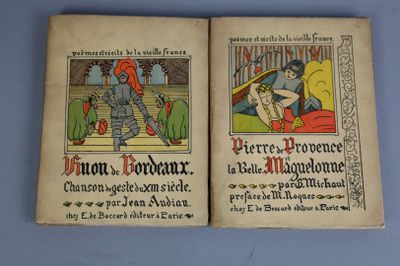 poèmes et récits de la vieille france.
Huon de Bordeaux.
Chanson de geste du XIII siècle.
par Jean Audiau.
chez E. de Boccard éditeur à Paris.
poèmes et récits de la vieille france.
Pierre de Provence
et
la Belle Maguelonne
par G. Michaut
preface de M. Roques
chez E. de Boccard éditeur à Paris